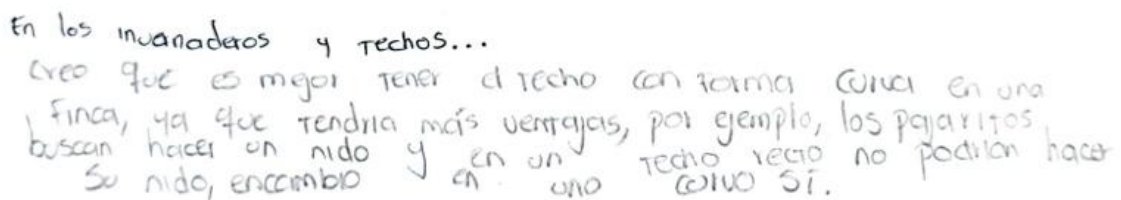 En los invanaderos y techos...
creo que es mejor tener el techo con forma curva en una
finca, ya que tendria más ventajas, por ejemplo, los pajaritos
buscan hacer un nido y en un techo recto no podrian hacer
su nido, encambio en uno corvo sí.